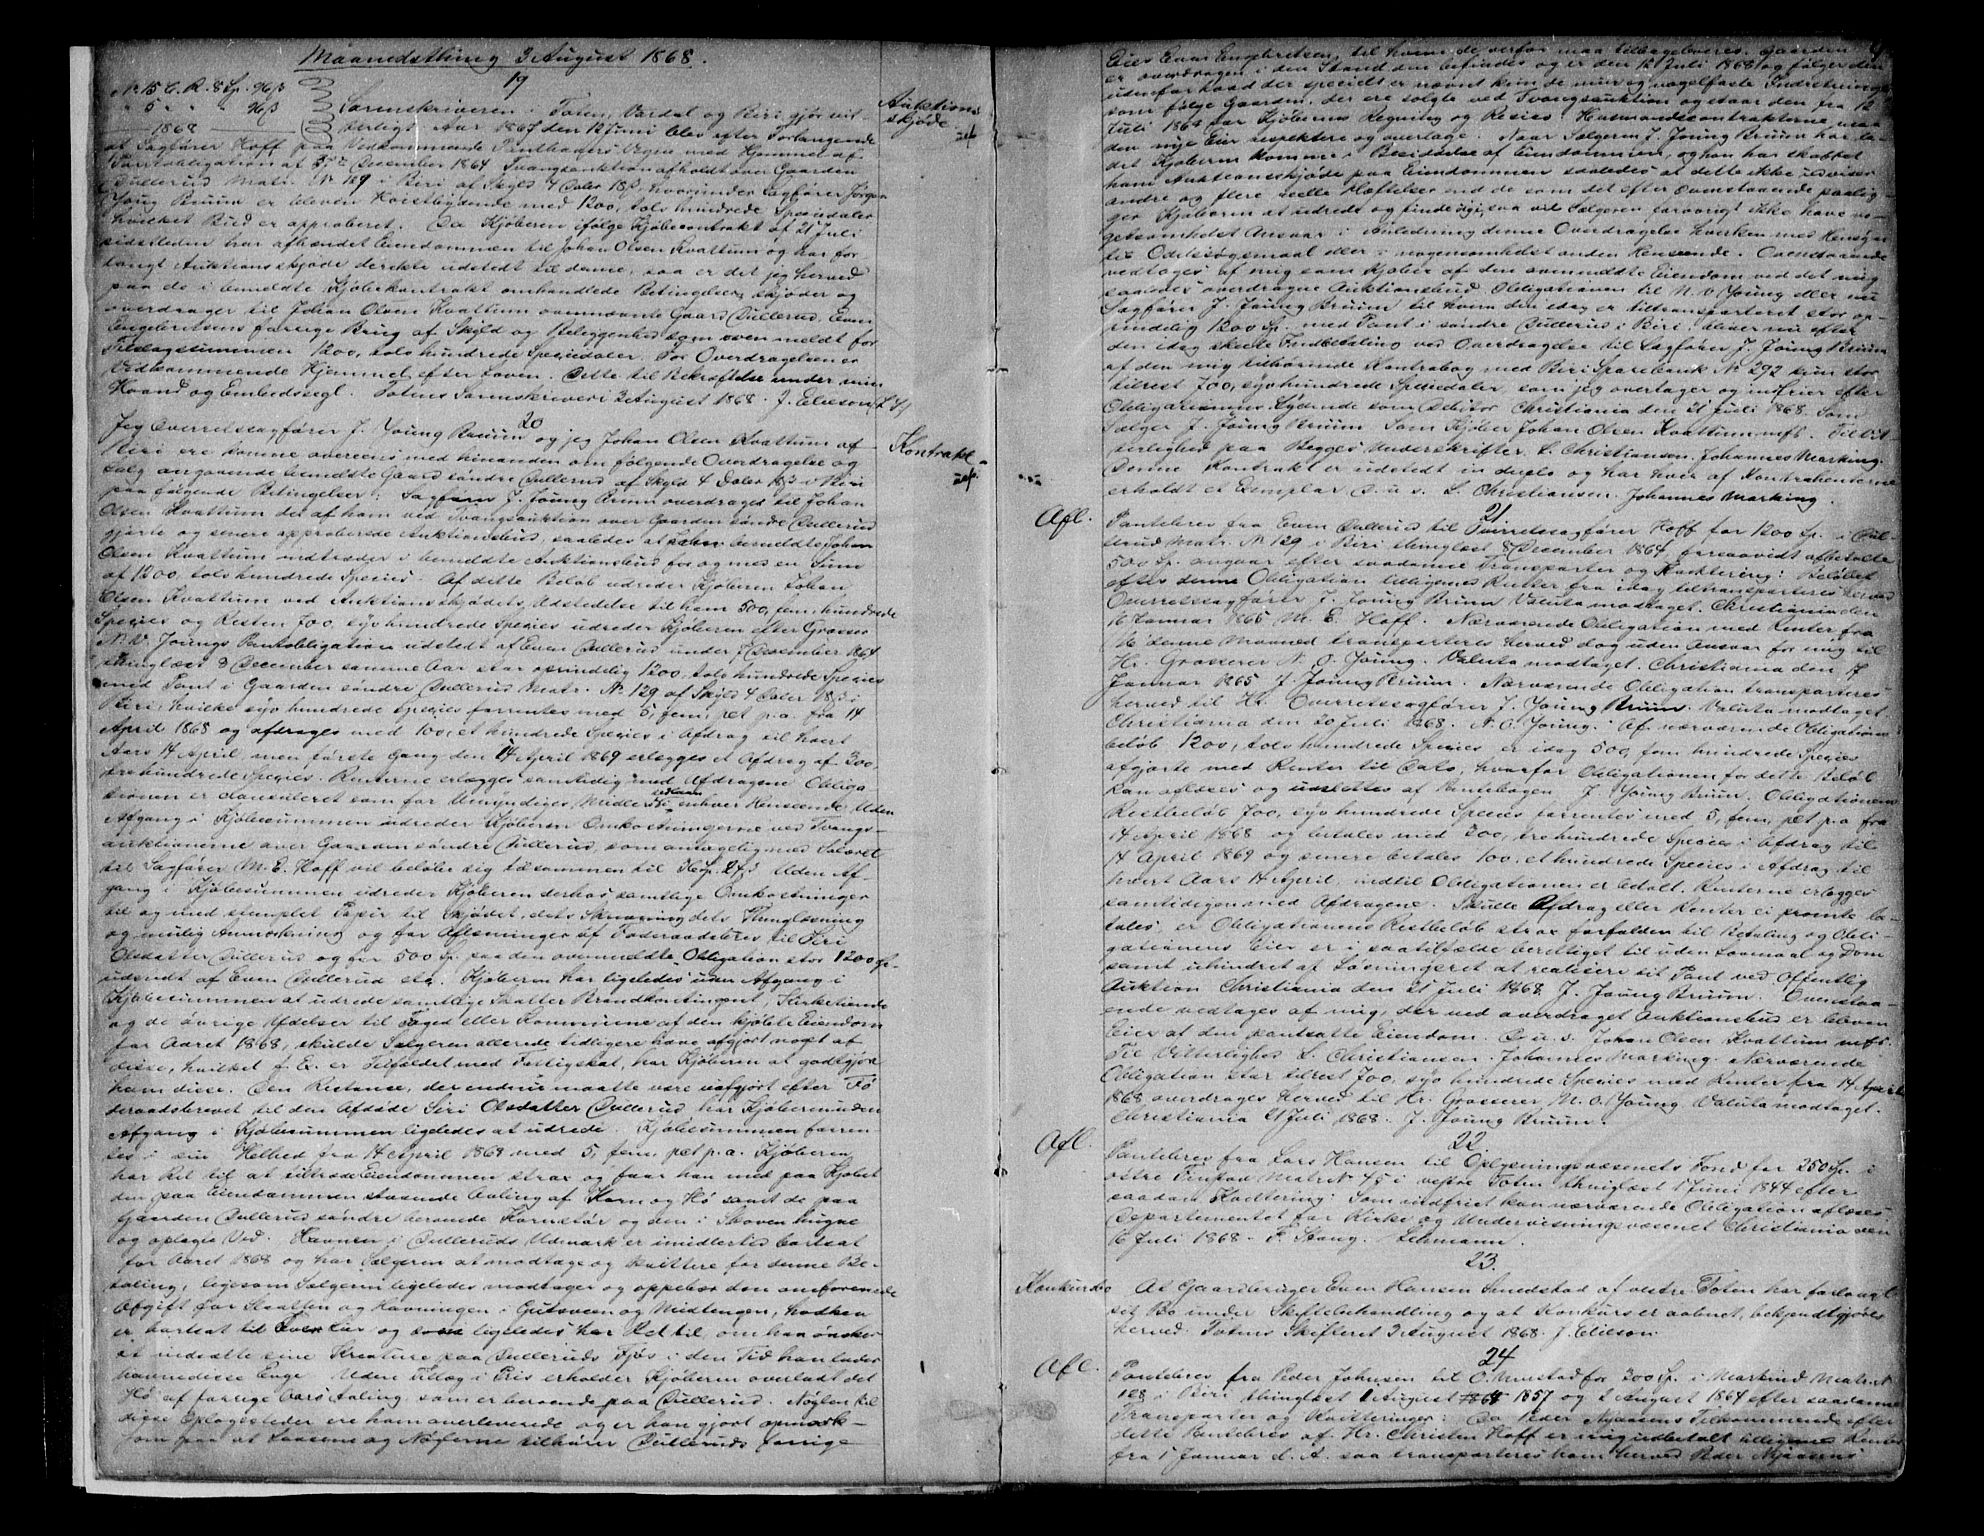 Maanedsthing 3 August 1868.
19
No 15 C. R. 8 Sp. 96 β
" 5 " " 96 β
1868
Auktions
skjøde
Sorenskriveren i Toten, Vardal og Biri gjør vit-
terligt Aar 1867 den 12 Juni blev efter Forlangende
af Sagfører Hoff paa Vedkommende Panthavers Vegne med Hjemmel af
Panteobligation af December 1864 Tvangsauktion afholdt over Gaarden
Dullerud Matr. No 129 i Biri af Skyld 4 Daler 18 β, hvorunder Sagfører Jørgen
Young Bruun er bleven Høistbydende med 1200, tolv hundrede Speciedaler
hvilket Bud er approberet. Da Kjøberen ifølge Kjøbecontrakt af 21 Juli
sidstleden har afhændet Eiendommen til Johan Olsen Kvattum og har for
langt Auktionsskjøde direkte udstedt til denne, saa er det jeg herved
paa de i bemeldte Kjøbekontrakt omhandlede Betingelser skjøder og
overdrager til Johan Olsen Kvattum ovennævnte Gaard Dullerud, Even
Engebretsens forrige Brug af Skyld og Beliggenhed som oven meldt for
Tilslagssummen 1200, tolv hundrede Speciedaler. For Overdragelsen er
Vedkommende Hjemmel efter Loven. Dette til Bekræftelse under min
Haand og Embedssegl. Totens Sorenskriveri 3 August 1868. J. Ellefson (L.S.)
20
Kontrakt
Jeg Overretssagfører J. Young Bruun og jeg Johan Olsen Kvattum af
Biri ere komne overens med hinanden om følgende Overdragelse og
Salg angaaende bemeldte Gaard søndre Dullerud af Skyld 4 Daler 18 β i Biri
paa følgende Betingelser: Sagfører J. Young Bruun overdrager til Johan
Olsen Kvattum det af ham ved Tvangsauktion over Gaarden søndre Dullerud
gjorte og senere approberede Auktionsbud, saaledes at bemeldte Johan
Olsen Kvattum indtræder i bemeldte Auktionsbud for og med en Sum
af 1200, tolv hundrede Species. Af dette Beløb udreder Kjøberen Johan
Olsen Kvattum ved Auktionsskjødets Udstedelse til ham 500, fem hundrede
Species og Resten 700, syv hundrede Species udreder Kjøberen efter Grosserer
N. O. Youngs Pantobligation udstedt af Even Dullerud under 7 December 1864
thinglæst 8 December samme Aar stor oprindelig 1200, tolv hundrede Species
med Pant i Gaarden søndre Dullerud Matr. No 129 af Skyld 4 Daler 18 β i
Biri, hvilke syv hundrede Species forrentes med 5, fem, pct p.a. fra 14
April 1868 og afdrages med 100, et hundrede Species i Afdrag til hvert
Aars 14 April, men første Gang den 14 April 1869 erlægges et Afdrag af 300,
trehundrede Species. Renterne erlægges samtidig med Afdragene. Obliga
tionen er clausuleret som for Umyndiges Midler i enhver Henseende. Uden
Afgang i Kjøbesummen udreder Kjøberen Omkostningerne ved Tvangs-
auktionerne over Gaarden søndre Dullerud, som antagelig med Salæret
til Sagfører M. E. Hoff vil beløbe sig tilsammen til 36 Sp. 27 β. Uden Af
gang i Kjøbesummen udreder Kjøberen derhos samtlige Omkostninger
til og med stemplet Papir til Skjødet, dets Skrivning dets Thinglæsning
og mulig Anmærkning og for Aflæsninger af Føderaadsbrev til Siri
Olsdatter Dullerud og for 500 Sp. paa den ovenmeldte Obligation stor 1200 Sp.
udstedt af Even Dullerud etc. Kjøberen har ligeledes uden Afgang i
Kjøbesummen at udrede samtlige Skatter Brandkontingent, Kirketiende
og de øvrige Udelser til Foged eller Kommune af den kjøbte Eiendom
for Aaret 1868, skulde Sælgeren allerede tidligere have afgjort noget af
disse, hvilket f. Ex. er Tilfældet med Fattigskat, har Kjøberen at godtgjøre
ham disse. Den Restance, der endnu maatte være uafgjort efter Fø
deraadsbrevet til den Afdøde Siri Olsdatter Dullerud, har Kjøberen uden
Afgang i Kjøbesummen ligeledes at udrede. Kjøbesummen forren
tes i sin Helhed fra 14 April 1868 med 5, fem, pct p.a. Kjøberen
har Ret til at tiltræde Eiendommen strax og faar han med paa Kjøbet
den paa Eiendommen staaende Avling af Korn og Hø samt de paa
Gaarden Dullerud søndre beroende Kornstør og den i Skoven hugne
og oplagte Ved. Havnen i Dulleruds Udmark er imidlertid bortsat
for Aaret 1868 og har Sælgeren at modtage og kvittere for denne Be
taling, ligesom Sælgeren ligeledes modtager og oppebær den omforenede
Afgift for Slaatten og Havningen i Gutsveen og Midtengen, hvilken
er bortsat til og ligeledes har Ret til, om han ønsker
at indsætte sine Kreature paa Dulleruds Fjøs i den Tid han lader
havne disse Enge. Uden Tillæg i Pris erholder Kjøberen overladt det
Hø af forrige Aars Avling som er beroende paa Dullerud. Nøglen til
disse Oplagssteder ere ham overleverede og er han gjort opmærk-
som paa at Laasene og Nøglerne tilhører Dulleruds forrige
Eier Even Engebretsen, til hvem de derfor maa tilbageleveres. Gaarden
er overdragen i den Stand den befindes og er den 12 Juli 1868 og følger den
udenfor hvad der specielt er nævnt kun de mur og nagelfaste Indretninger
som følge Gaarden, der ere solgte ved Tvangsauktion og staar den fra 12
Juli 1868 for Kjøberens Regning og Risico. Husmandscontrakterne maa
den nye Eier respektere og overtage. Naar Sælgeren J. Young Bruun har la-
det Kjøberen komme i Besiddelse af Eiendommen, og han har skaffet
ham Auktionsskjøde paa Eiendommen saaledes at dette ikke udviser
andre og flere reelle Hæftelser end de som det efter Ovenstaaende paalig
ger Kjøberen at udrede og finde sig i, saa vil Sælgeren forøvrigt ikke have no-
getsomhelst Ansvar i Anledning denne Overdragelse hverken med Hensyn
til Odelssøgsmaal eller i nogensomhelst anden Henseende. Ovenstaaende
vedtages af mig som Kjøber af den ovenmeldte Eiendom ved det mig
saaledes overdragne Auktionsbud. Obligationen til N. O. Young eller nu
Sagfører J. Young Bruun til hvem den idag er tiltransporteret stor op-
rindelig 1200 Sp. med Pant i søndre Dullerud i Biri, bliver nu efter
den idag skete Indbetaling ved Overdragelse til Sagfører J. Young Bruun
af den mig tilhørende Kontrabog med Biri Sparebank No 292 kun stor
tilrest 700, syv hundrede Speciedaler som jeg overtager og indfrier efter
Obligationens Lydende som Debitor. Christiania den 21 Juli 1868. Som
Sælger J. Young Bruun. Som Kjøber Johan Olsen Kvattum mfP. Til Vit
terlighed paa Begges Underskrifter L. Christiansen. Johannes Marking.
Denne Kontrakt er udstedt in duplo og har hver af Kontrahenterne
erholdt et Exemplar D. u. s. L. Christiansen. Johannes Marking.
21
Afl.
Pantebrev fra Even Dullerud til Overretssagfører Hoff for 1200 Sp. i Dul-
lerud Matr. No 129 i Biri thinglæst 8 December 1864, forsaavidt afbetalte
500 Sp. angaar efter saadanne Transporter og Kvittering: Beløbet
efter denne Obligation tilligemed Renter fra idag tiltransporteres herved
Overretssagfører J. Young Bruun Valuta modtaget. Christiania den
16 Januar 1865 M. E. Hoff. Nærværende Obligation med Renter fra
16 denne Maaned transporteres herved dog uden Ansvar for mig til
Hr. Grosserer N. O. Young. Valuta modtaget. Christiania den 17
Januar 1865 J. Young Bruun. Nærværende Obligation transporteres
herved til Hr. Overretssagfører J. Young Bruun. Valuta modtaget
Christiania den 20 Juli 1868. N. O. Young. Af nærværende Obligations
beløb 1200, tolv hundrede Species er idag 500, fem hundrede Species
afgjorte med Renter til Dato, hvorfor Obligationen for dette Beløb
kan aflæses og udslettes af Pantebogen. J. Young Bruun. Obligationens
Restbeløb 700, syv hundrede Species forrentes med 5, fem, pct p.a. fra
14 April 1868 og betales med 300, trehundrede Species i Afdrag til
14 April 1869 og senere betales 100, et hundrede Species i Afdrag til
hvert Aars 14 April, indtil Obligationen er betalt. Renterne erlægges
samtidigen med Afdragene. Skulle Afdrag eller Renter ei promte be-
tales, er Obligationens Restbeløb strax forfalden til Betaling og Obli-
gationens Eier er i saatilfælde berettiget til uden Lovmaal og Dom
samt uhindret af Løsningsret at realisere sit Pant ved offentlig
Auktion Christiania den 21 Juli 1868. J. Young Bruun. Ovenstaa-
ende vedtages af mig, der ved overdraget Auktionsbud er bleven
Eier af den pantsatte Eiendom. D. u. s. Johan Olsen Kvattum mfP.
Til Vitterlighed L. Christiansen. Johannes Marking. Nærværende
Obligation stor tilrest 700, syv hundrede Species med Renter fra 14 April
1868 overdrages herved til Hr. Grosserer N. O. Young. Valuta modtaget.
Christiania 21 Juli 1868. J. Young Bruun.
22
Afl.
Pantebrev fra Lars Hansen til Oplysningsvæsenets Fond for 250 Sp. i
østre Matr No 45 i vestre Toten thinglæst 1 Juni 1844 efter
saadan Kvittering: Som indfriet kan nærværende Obligation aflæses
Departementet for Kirke og Undervisningsvæsenet Christiania den
16 Juli 1868. F. Stang. Lehmann.
23.
Konkurs
At Gaardbruger Even Hansen Smedstad af vestre Toten har forlangt
sit Bo under Skiftebehandling og at Konkurs er aabnet, bekjendtgjøres
herved. Totens Skifteret 3 August 1868. J. Ellefson.
24
Afl.
Pantebrev fra Peder Johnsen til O. Mustad for 300 Sp. i Markind Matr. No
128 i Biri thinglæst 1 August 1857 og 2 August 1864 efter saadanne
Transporter og Kvitteringer: Da Peder Nyaasens Tilkommende efter
dette Pantebrev af Hr. Christen Hoff er mig indbetalt tilligemed Renter
fra 1 Januar d. A. saa transporteres ham herved Peder Nyaasens